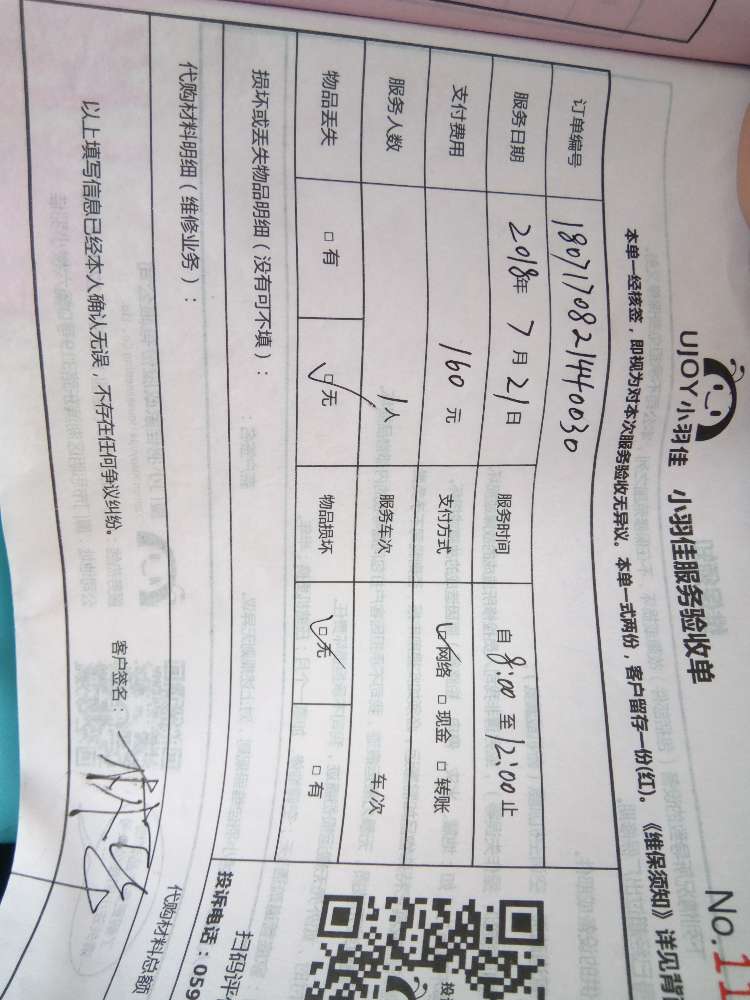 UJOY小羽佳 小羽佳服务验收单
No.11
本单一经核签，即视为对本次服务验收无异议。本单一式两份，客户留存一份(红)。《维保须知》详见背
订单编号 1807170821440030
服务日期 2018年 7月21日 服务时间 自 8:00 至 12:00 止
支付费用 160 元 支付方式 □网络 □现金 □转账
服务人数 1人 服务车次 车/次
物品丢失 □有 □无 物品损坏 □无 □有
损坏或丢失物品明细（没有可不填）：
扫码评
投诉电话：059
代购材料明细（维修业务）：
代购材料总额
以上填写信息已经本人确认无误，不存在任何争议纠纷。 客户签名：